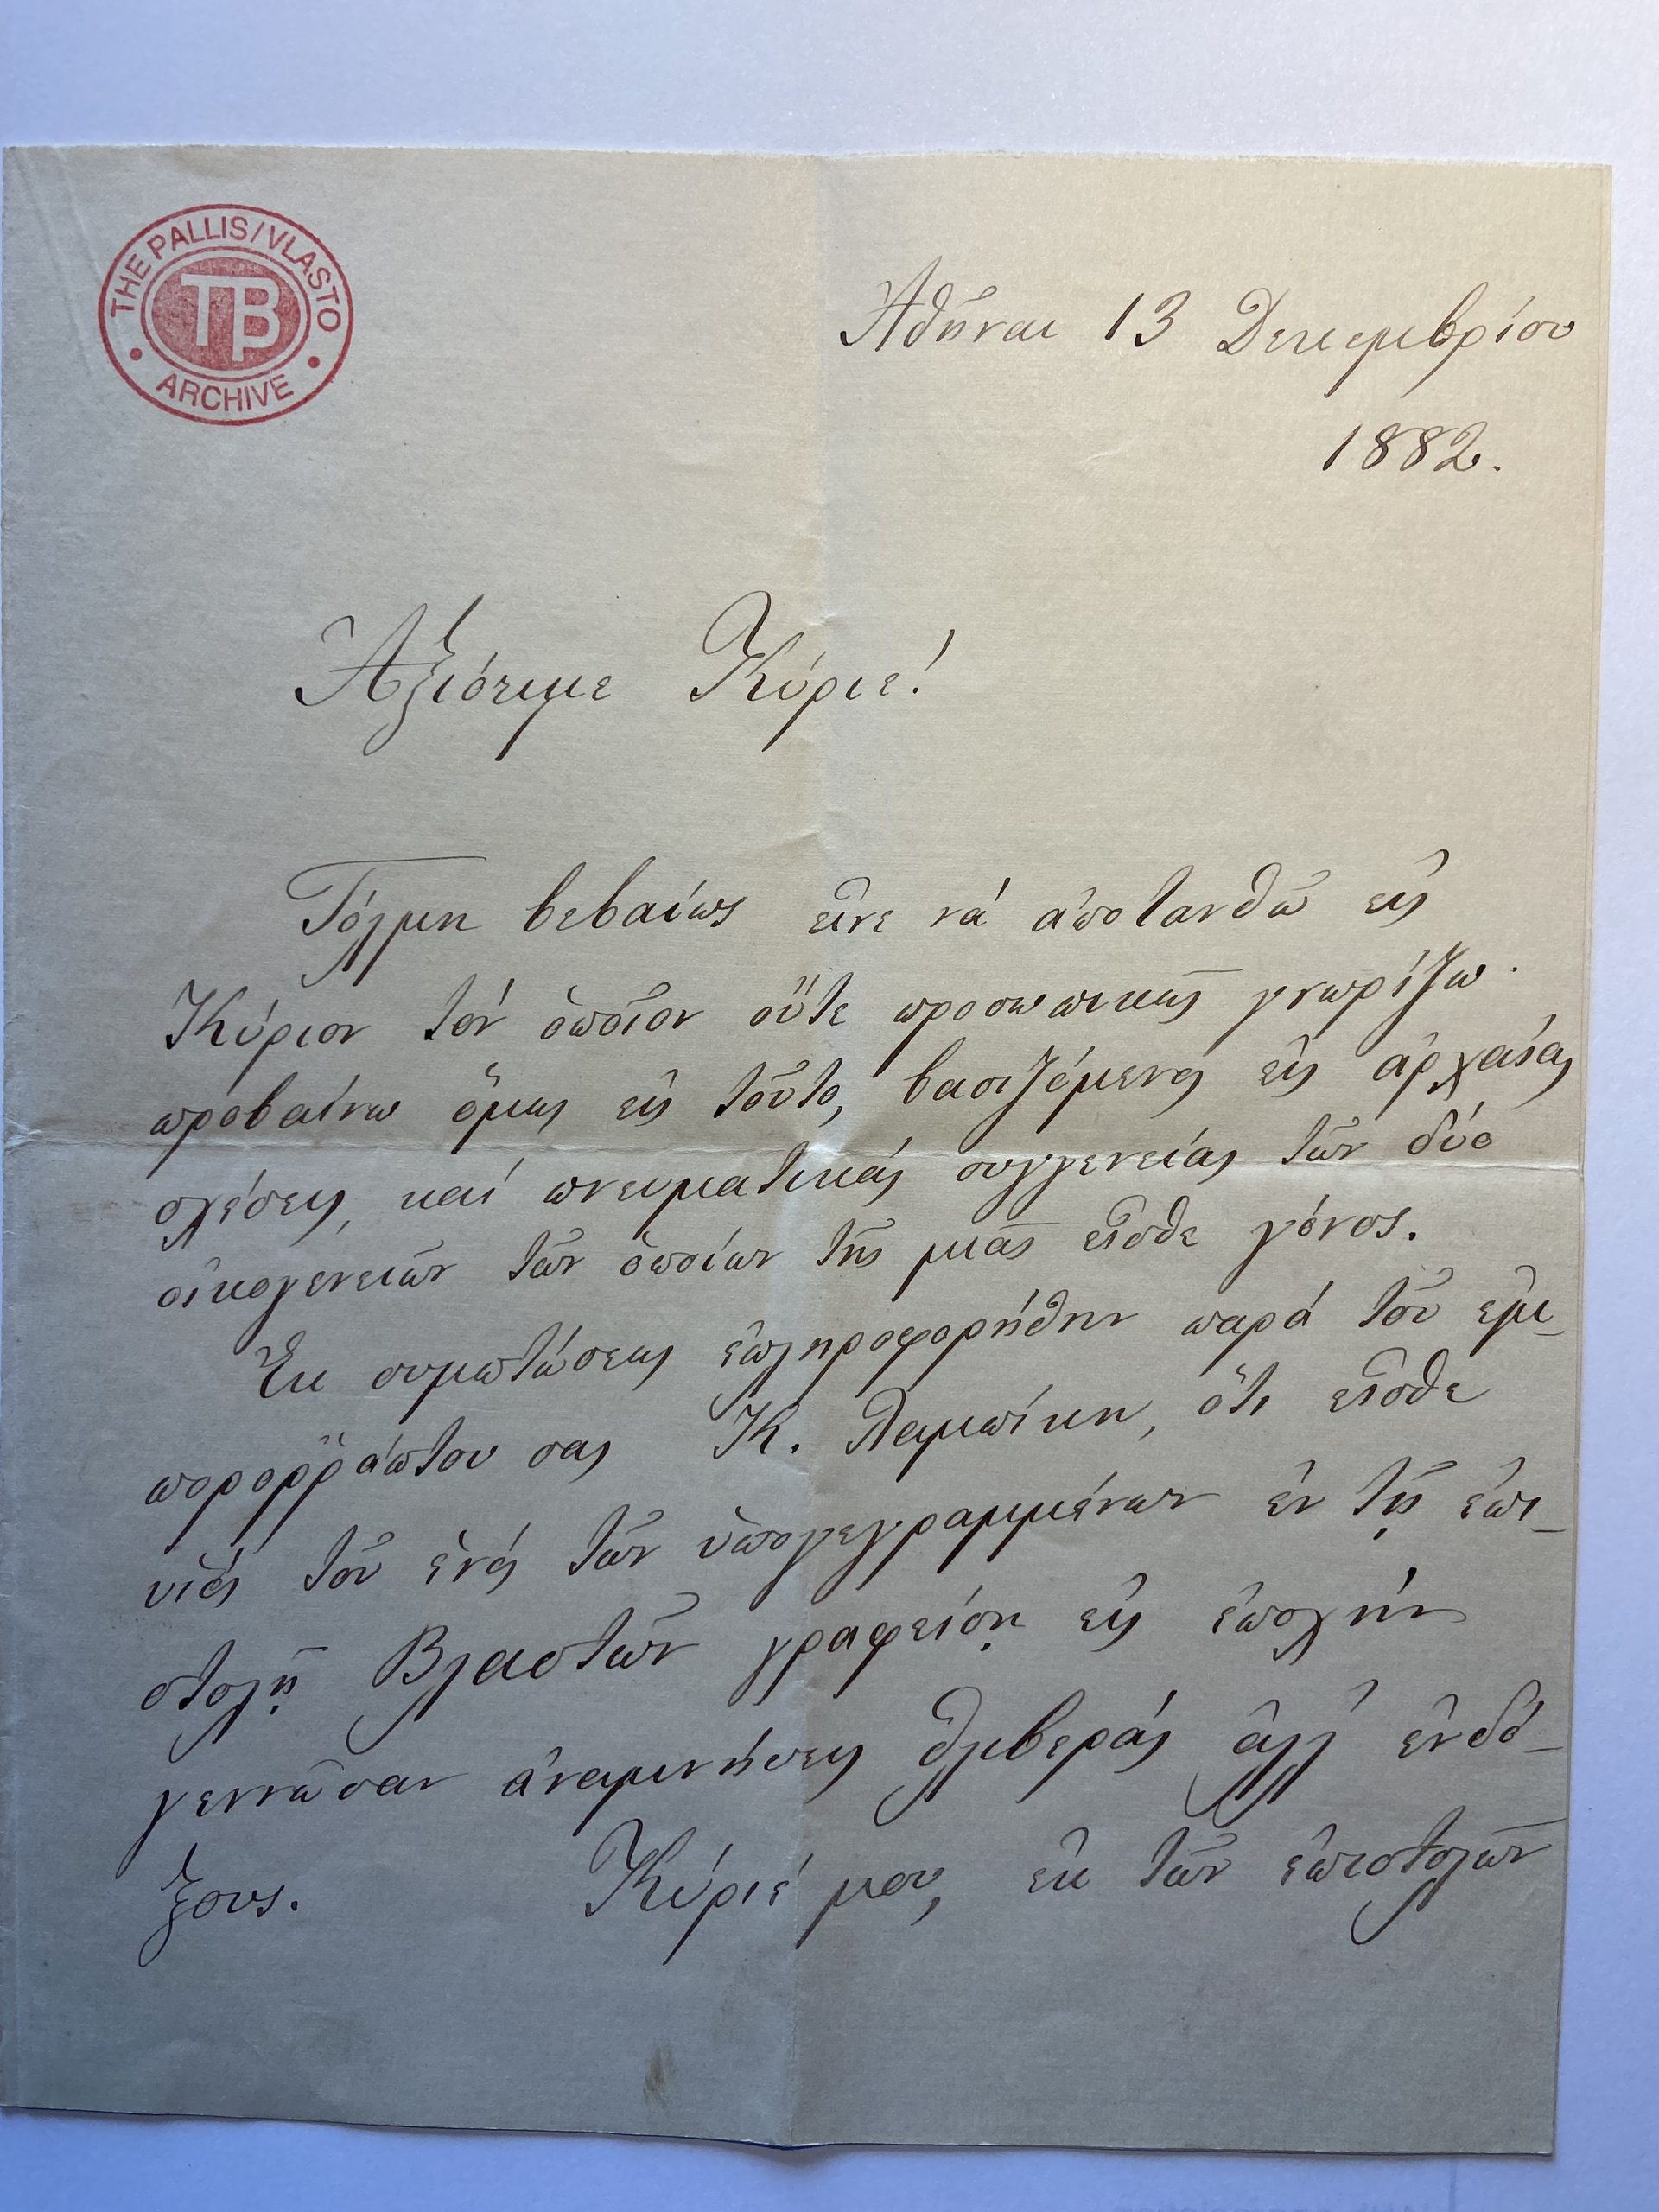 THE PALLIS/VLASTO
TB
ARCHIVE
Ἀθῆναι 13 Δεκεμβρίου
1882.
Ἀξιότιμε Κύριε!
Τόλμη βεβαίως εἶνε νά ἀποτανθῶ εἰς
Κύριον τόν ὁποῖον οὔτε προσωπικῶς γνωρίζω·
προβαίνω ὅμως εἰς τοῦτο, βασιζόμενος εἰς ἀρχαίας
σχέσεις, καί πνευματικάς συγγενείας τῶν δύο
οἰκογενειῶν τῶν ὁποίων τῆς μιᾶς εἶσθε γόνος.
Ἐκ συμπτώσεως ἐπληροφορήθην παρά τοῦ ἐμ-
πορορράπτου σας Κ. Λαμπίκη, ὅτι εἶσθε
υἱός τοῦ ἑνός τῶν ὑπογεγραμμένων ἐν τῇ ἐπι-
στολῇ Βλαστῶν γραφείσῃ εἰς ἐποχήν
γεννῶσαν ἀναμνήσεις θλιβεράς ἀλλ' ἐνδό-
ξους. Κύριέ μου, ἐκ τῶν ἐπιστολῶν